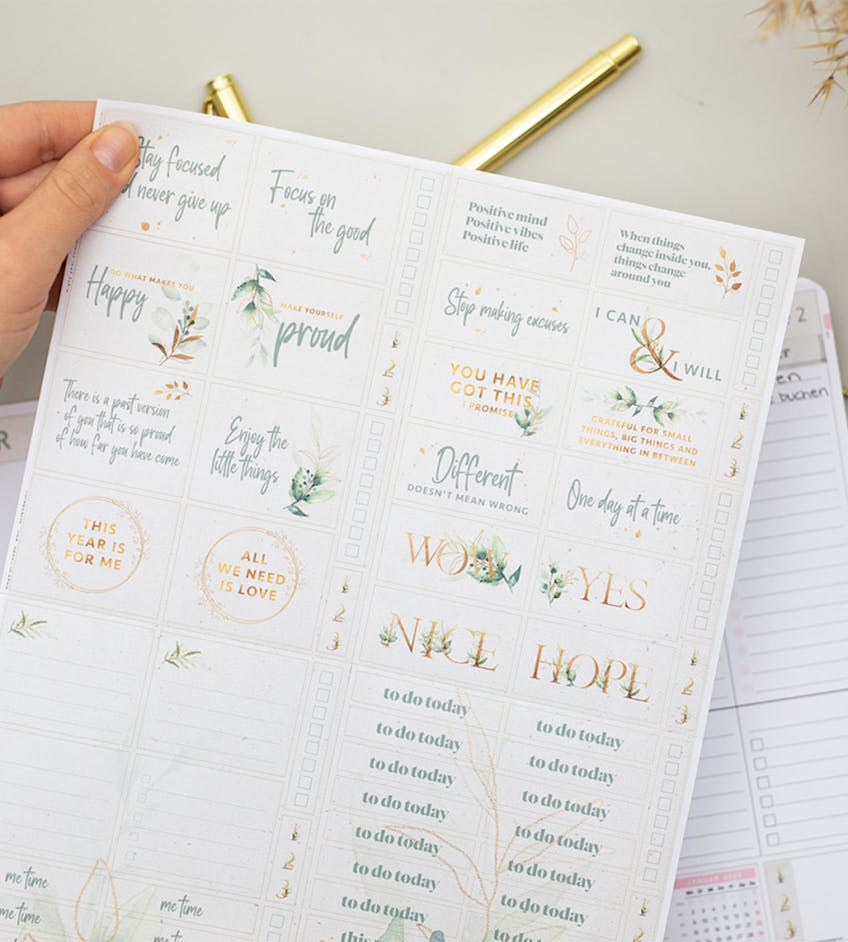 Stay focused
d never give up
Focus on
the good
DO WHAT MAKES YOU
Happy
MAKE YOURSELF
proud
There is a past version
of you that is so proud
of how far you have come
Enjoy the
little things
THIS
YEAR IS
FOR ME
ALL
WE NEED
IS LOVE
Positive mind
Positive vibes
Positive life
When things
change inside you,
things change
around you
Stop making excuses
I CAN
&
I WILL
YOU HAVE
GOT THIS
I PROMISE
GRATEFUL FOR SMALL
THINGS, BIG THINGS AND
EVERYTHING IN BETWEEN
Different
DOESN'T MEAN WRONG
One day at a time
WOW
YES
NICE
HOPE
1
2
3
1
2
3
1
2
3
1
2
3
1
2
3
to do today
to do today
to do today
to do today
to do today
to do today
to do today
to do today
to do today
to do today
to do today
to do today
to do today
me time
me time
me time
R
2
buchen
JANUAR
1
2
3